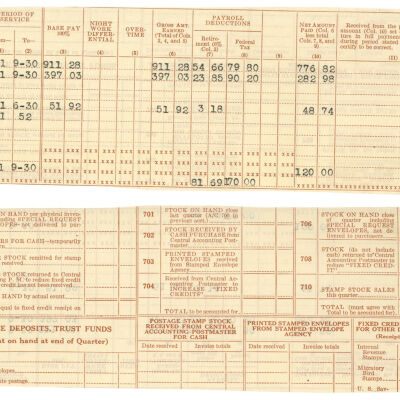 PERIOD OF SERVICE
BASE PAY 100%
NIGHT WORK DIFFER- ENTIAL
OVER- TIME
GROSS AMT. EARNED (Total of Cols. 3, 4, and 5)
PAYROLL DEDUCTIONS
Retire- ment (6% Col. 3)
Federal Tax
NET AMOUNT PAID (Col. 6 less total Cols. 7, 8, and 9)
Received from the p
amount (Col. 10) set
ture in full payment
during period stated
certify to be correct.
To—
(2) (3) (4) (5) (6) (7) (8) (9) (10) (11)
1 9-30 911 28 911 28 54 66 79 80 776 82
1 9-30 397 03 397 03 23 85 90 20 282 98
1 6-30 51 92 51 92 3 18 48 74
1 52
1 9-30 120 00
81 69 170 00
ON HAND per physical inven-
INCLUDING SPECIAL REQUEST
ELOPES—not delivered to pur-
ERS FOR CASH—temporarily
STOCK remitted for stamp
received.
STOCK returned to Central
credit has not been received.
HAND by actual count
equal to fixed credit receipt on
701 STOCK ON HAND close
last quarter (A/C 700 in
previous acct.)
702 STOCK RECEIVED BY
CASH PURCHASE from
Central Accounting Post-
master
703 PRINTED STAMPED
ENVELOPES received
from Stamped Envelope
Agency
704 Received from Central Ac-
counting Postmaster to
INCREASE "FIXED
CREDITS"
TOTAL to be accounted for
706 STOCK ON HAND close
of quarter including
SPECIAL REQUEST
ENVELOPES, not de-
livered to purchasers.
708 STOCK (do not include
cash) returned to Central
Accounting Postmaster to
reduce "FIXED CRED-
IT"
710 STAMP STOCK SALES
this quarter
TOTAL (must agree with
Total to be accounted for).
E DEPOSITS, TRUST FUNDS
nt on hand at end of Quarter)
POSTAGE STAMP STOCK
RECEIVED FROM CENTRAL
ACCOUNTING POSTMASTER
FOR CASH
Date received Invoice totals
PRINTED STAMPED ENVELOPES
FROM STAMPED ENVELOPE
AGENCY
Date received Invoice totals
FIXED CRED
FOR OTHER
(Receipt
Internal
Revenue
Stamps
Migratory
Bird
Stamps
U. S. Sav-
te postage.